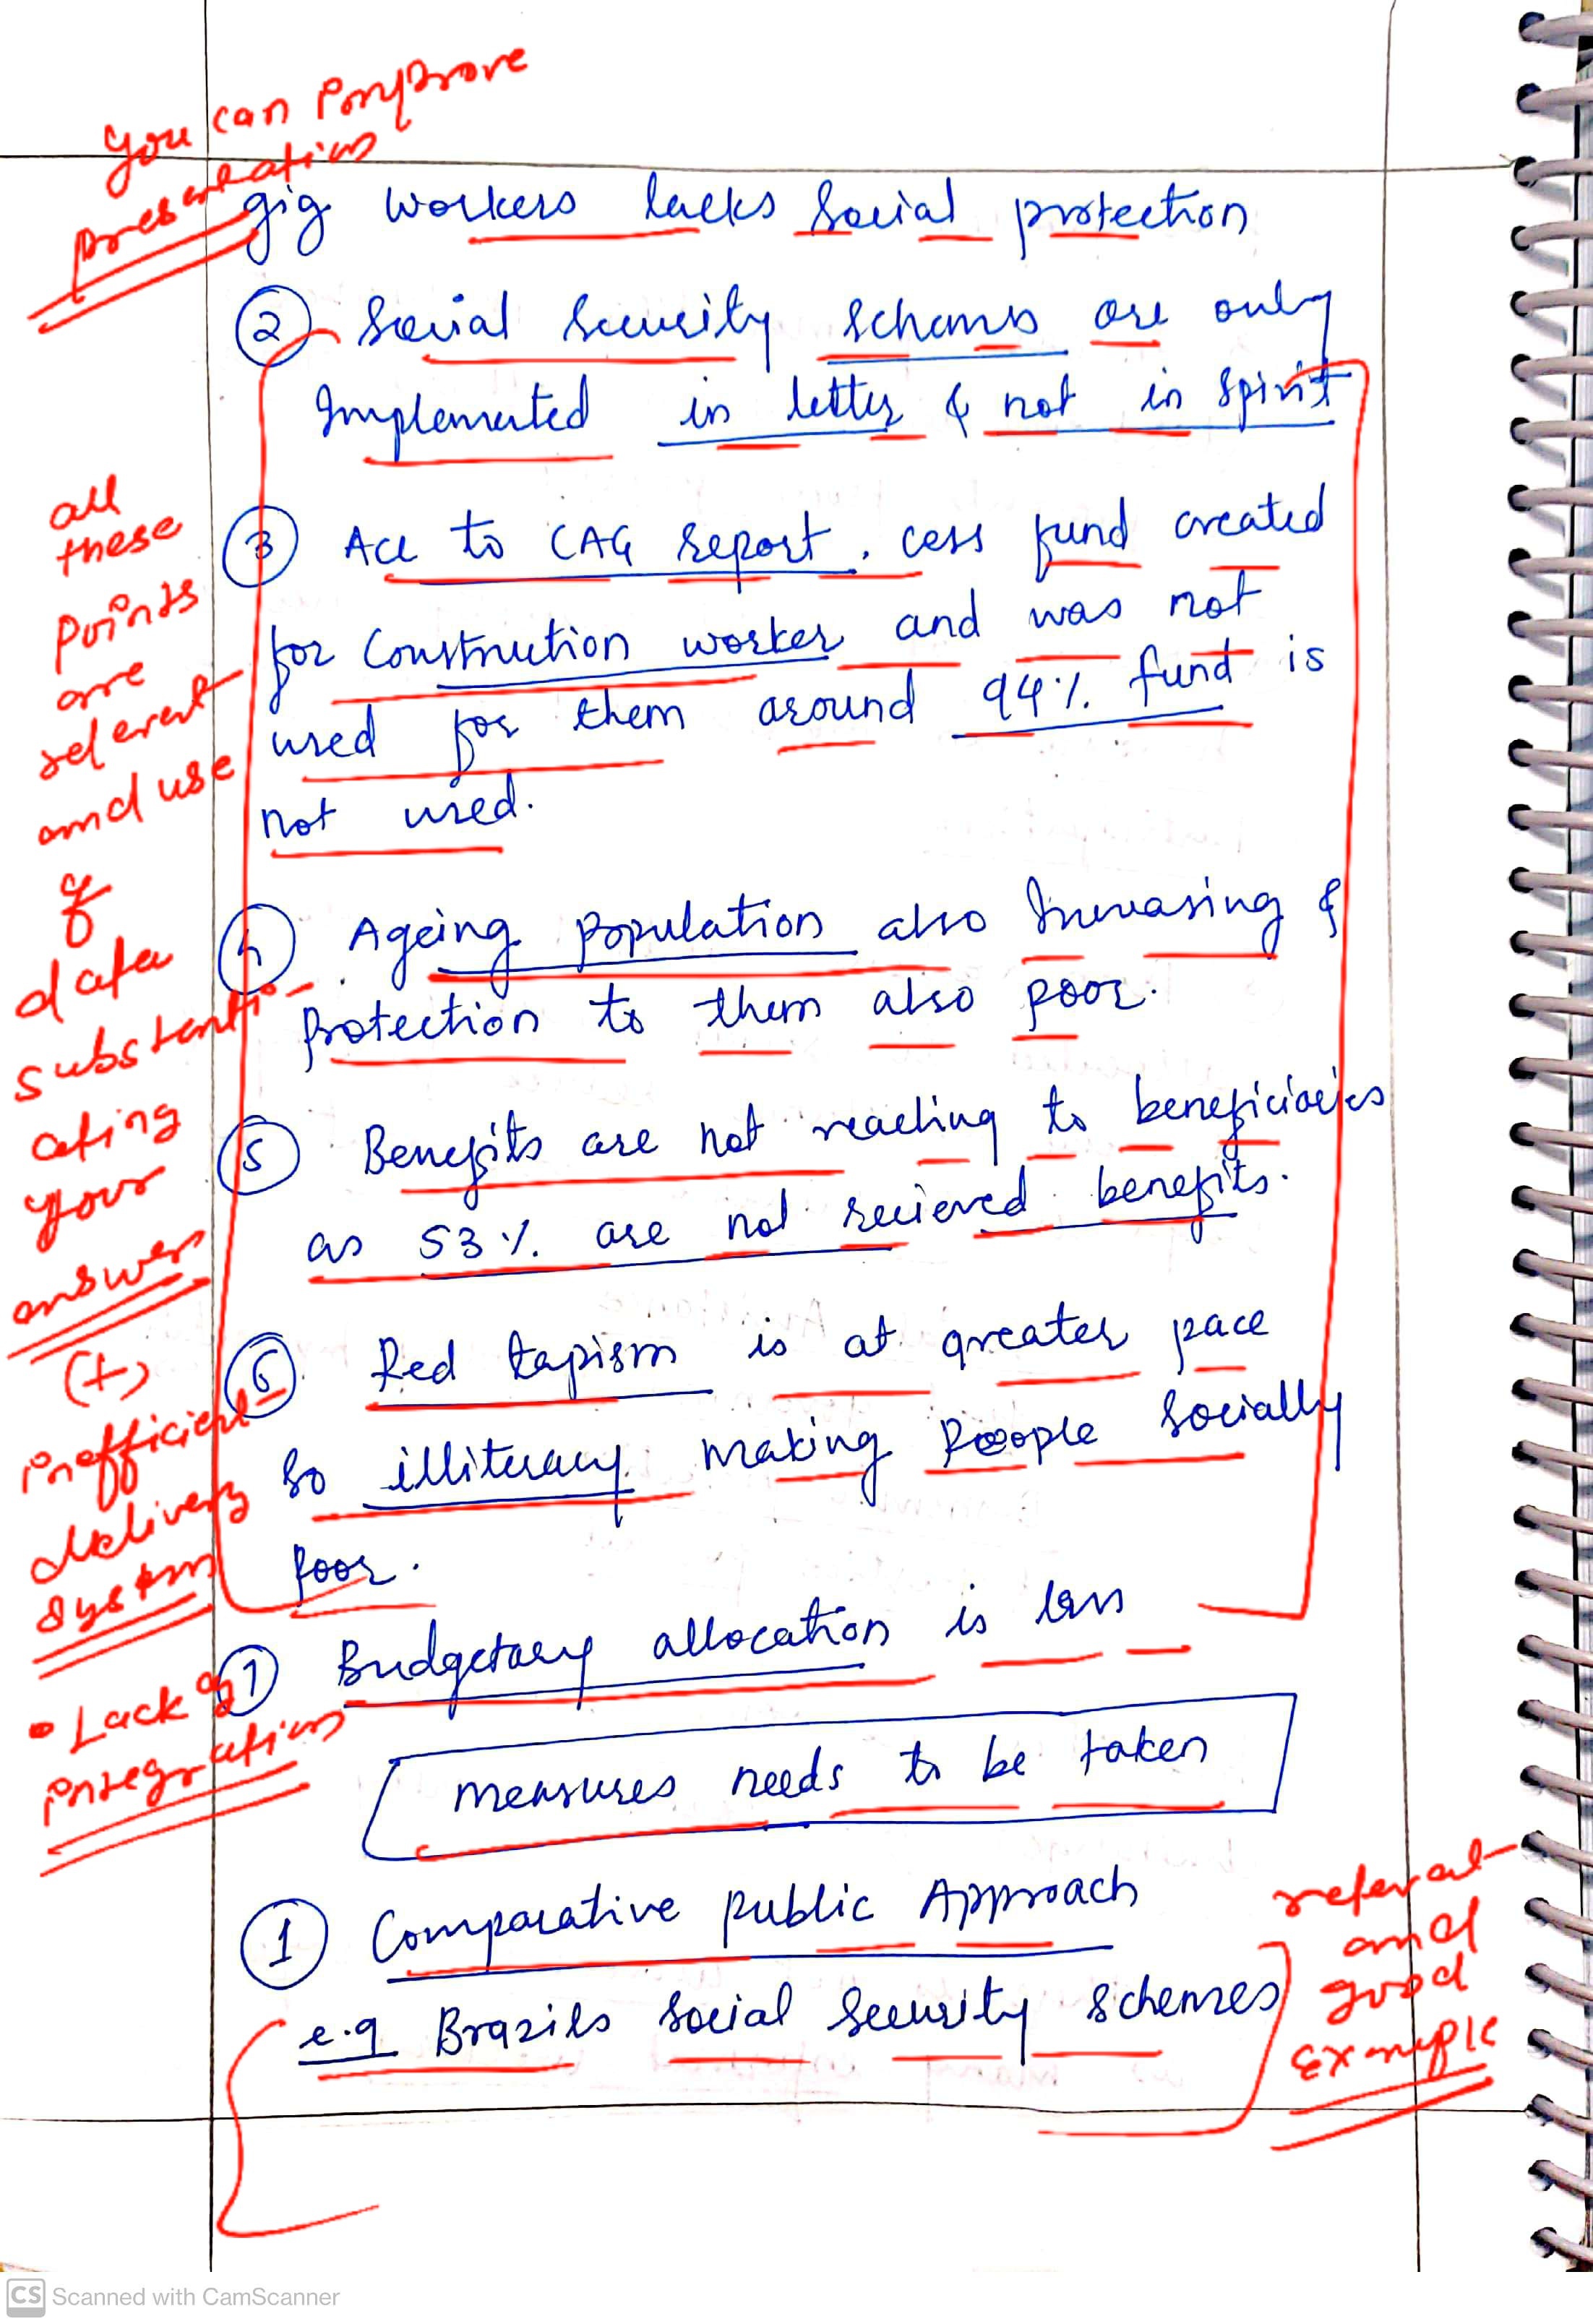 you can improve
presentation
gig workers lacks Social protection
2 Social Security schems are only
Implemented in letter & not in spirit
3 Acc to CAG report, cess fund created
for Construction worker and was not
used for them around 94% fund is
not used.
4 Ageing population also Increasing &
Protection to them also poor.
5 Benefits are not reaching to beneficiaries
as 53% are not recieved benefits.
6 Red tapism is at greater pace
So illiteracy making People Socially
Poor.
7 Budgetary allocation is less
measures needs to be taken
1 Comparative public Approach
e.g Brazils Social Security Schemes
all
these
points
are
relevant
and use
of
data
substanti-
ating
your
answer
(+)
inefficient
delivery
system
• Lack of
integration
relevant
and
good
Example
CS Scanned with CamScanner